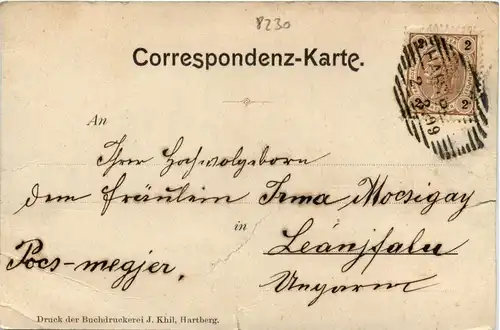 8230
Correspondenz-Karte.
2 2
HARTB
2 2
99
An
Ihrer Hochwolgeborn
dem Fräulein Irma Mocsigay
in
Leánjfalu
Pocs-megjer,
Ungarn
Druck der Buchdruckerei J. Khil, Hartberg.